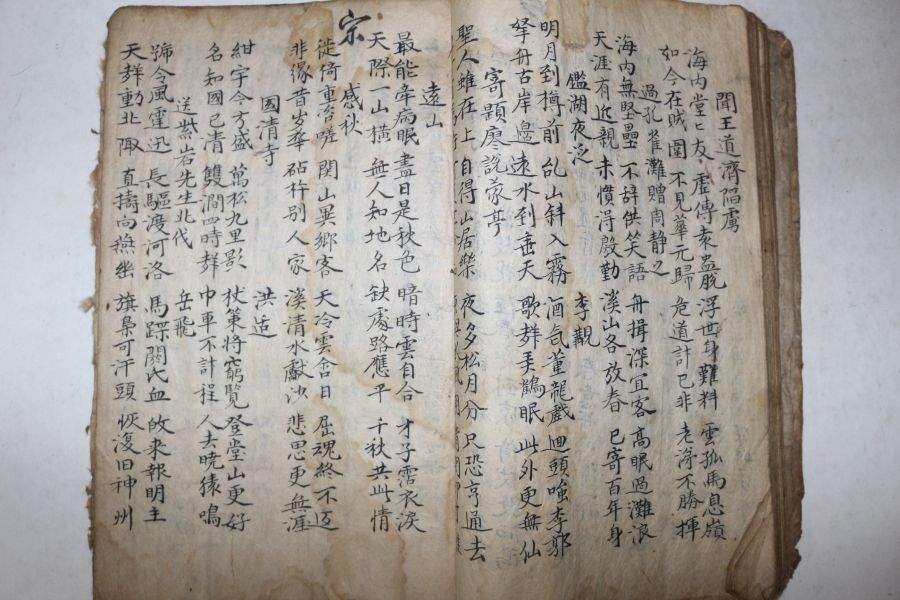 聞王道濟陷虜
海内堂〻友 虛傳袁盎脫 浮世身難料 雲孤馬息嶺
如今在賊圍 不見華元歸 危道計已非 老淚不勝揮
過孔雀灘贈周靜之
海内無堅壘 不辞供笑語 舟揖深宜客 高眠過灘浪
天涯有近親 未慣得殷勤 溪山各放春 已寄百年身
鑑湖夜泛 李覯
明月到樽前 乱山斜入霧 酒气薰龍戲 迴頭嗤李郭
拏舟古岸邊 遠水到垂天 歌群弄鷁眠 此外更無仙
寄題廖說家亭
聖人雖在上 自得山居樂 夜多松月分 只恐亨通去
宗
遠山
最能牽病眼 盡日是秋色 暗時雲自合 才子霑衣淚
天際一山橫 無人知地名 缺處路應平 千秋共此情
感秋
徙倚重咨嗟 関山異鄉客 天冷雲含日 屈魂終不返
非緣昔岁華 砧杵别人家 溪清水獻沙 悲思更無涯
國清寺 洪适
紺宇今方盛 萬松九里影 杖策将窮覽 登堂山更好
名知國已清 雙澗四時群 巾車不計程 人去曉猿鳴
送紫岩先生北伐 岳飛
號令風霆迅 長驅渡河洛 馬蹀閼氏血 故来報明主
天群動北陬 直擣向燕幽 旗梟可汗頭 恢复旧神州